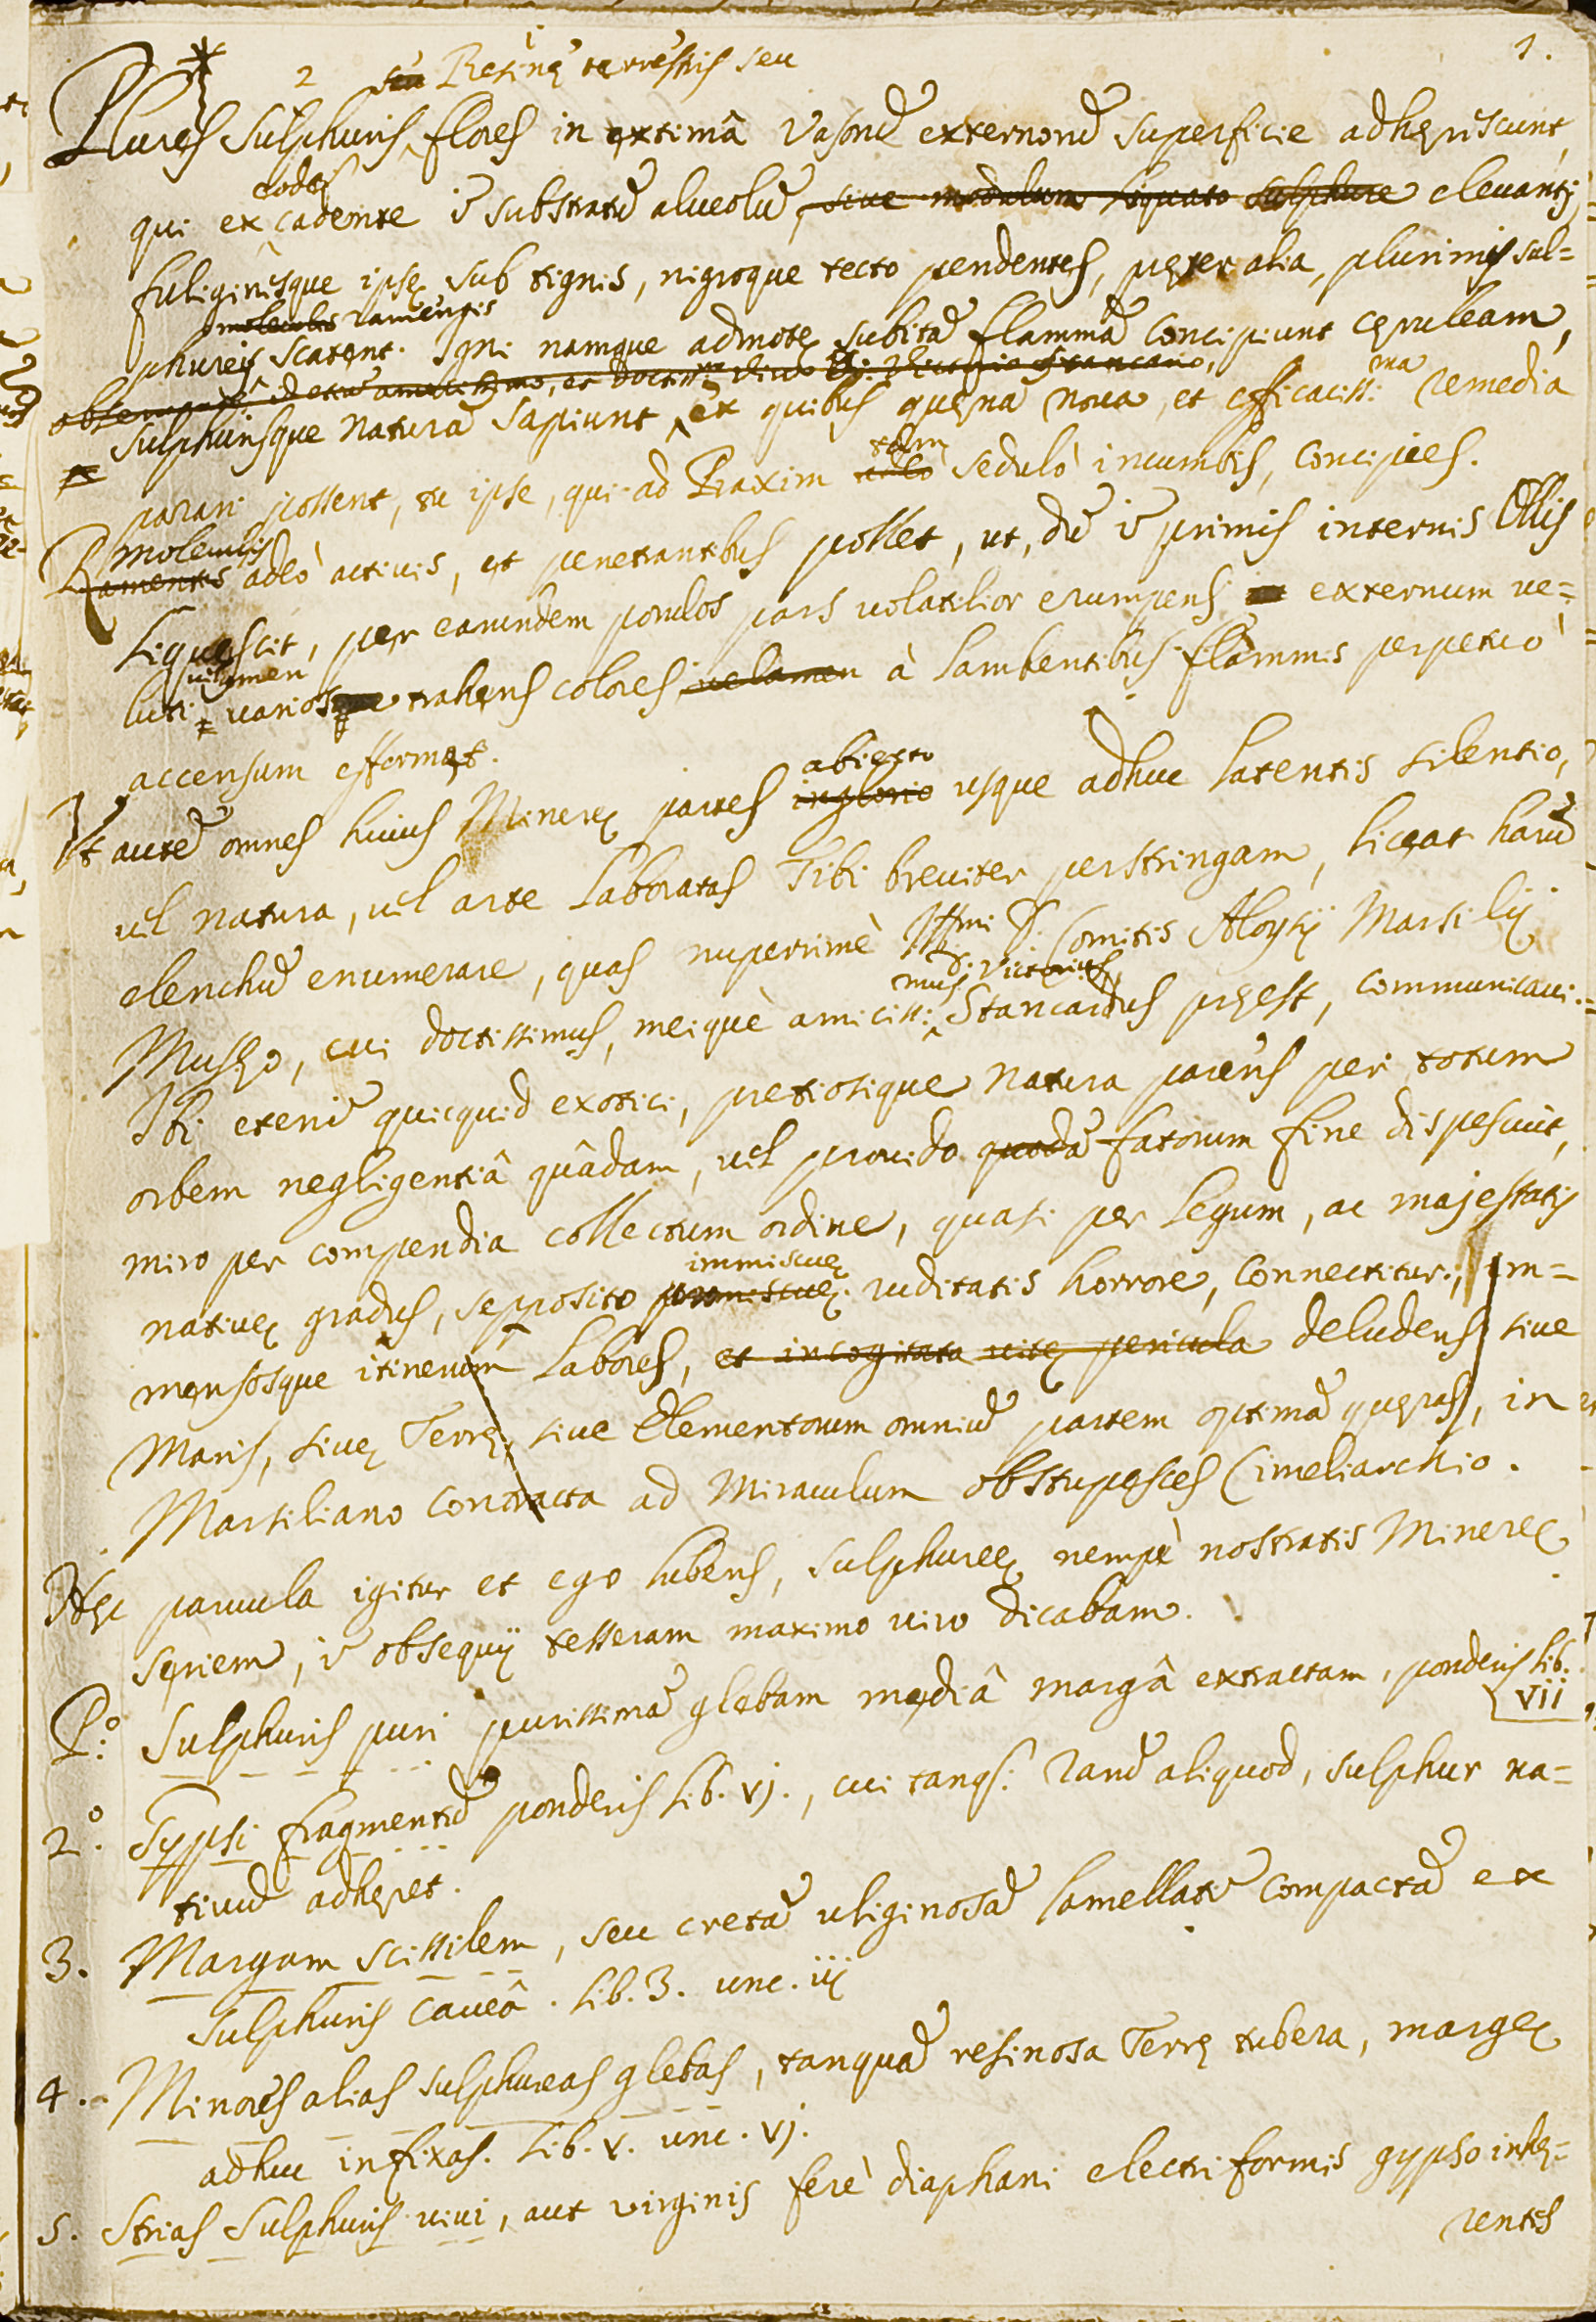 1.
2 seu Retinę terrestris seu
Plures Sulphuris flores in extimâ Vasorũ externorũ superficie adhęrescunt,
eodẽ
qui ex cadente ĩ substratũ alueolũ, siue modulum liquato sulphure eleuantur,
fuliginesque ipsę sub tignis, nigroque tecto pendentes, pręter alia, plurimis sul=
moleculis ramentis
phureis scatent. Igni namque admotę subitã flammã concipiunt cęruleam,
Sulphurisque naturã sapiunt, ex quibus quęnã noua, et efficaciss:ma remedia
parari possent, tu ipse, qui ad Praxim tam sedulò incumbis, concipies.
moleculis
Ramentis adeò actiuis, et penetrantibus pollet, ut, dũ ĩ primis internis Ollis
liquescit, per earumdem porulos pars uolatilior erumpens externum ue=
uelamen
luti uarios trahens colores uelamen à lambentibus flammis perpetuò
accensum efformet.
abiecto
Vt autẽ omnes huius Minerę partes inglorio usque adhuc latentis silentio,
uel natura, uel arte laboratas Tibi breuiter perstringam, liceat harũ
elenchũ enumerare, quas nuperrimè Illmi D. Comitis Aloysij Marsilij
mus D. Victorius
Musęo, cui doctissimus, meiquè amiciss: Stancardus pręest, communicaui.
Ibi etenĩ quicquid exotici, pretiosique Natura parens per totum
orbem negligentiâ quâdam, uel prouido quodã fatorum fine dispescuit,
miro per compendia collectum ordine, quasi per legum, ac majestatis
immiscuę
natiuę gradus, seposito promiscuę ruditatis horrore, connectitur., im=
mensosque itinerum labores, et incogitata uitę pericula deludens siue
Maris, siue Terrę, siue Elementorum omniũ partem optimã quęras, in
Marsiliano contracta ad Miraculum obstupesces Cimeliarchio.
Hęc paruula igitur et ego lubens, sulphureę nempè nostratis Minerę
seriem, ĩ obsequij tesseram maximo uiro dicabam.
P.o Sulphuris puri purissimã glebam mediâ margâ extractam, ponderis lib.
vii
2.o Gypsi fragmentũ ponderis lib. vj., cui tanqs: rarũ aliquod, sulphur na=
tiuũ adhęret.
3. Margam scissilem, seu cretã uliginosã lamellatĩ compactã ex
sulphuris caueâ. lib. 3. unc. iij
4. Minores alias sulphureas glebas, tanquã resinosa Terrę tubera, margę
adhuc infixas. lib. v. unc. vj.
5. Strias Sulphuris uiui, aut virginis ferè diaphani electriformis gypso inhę=
rentes